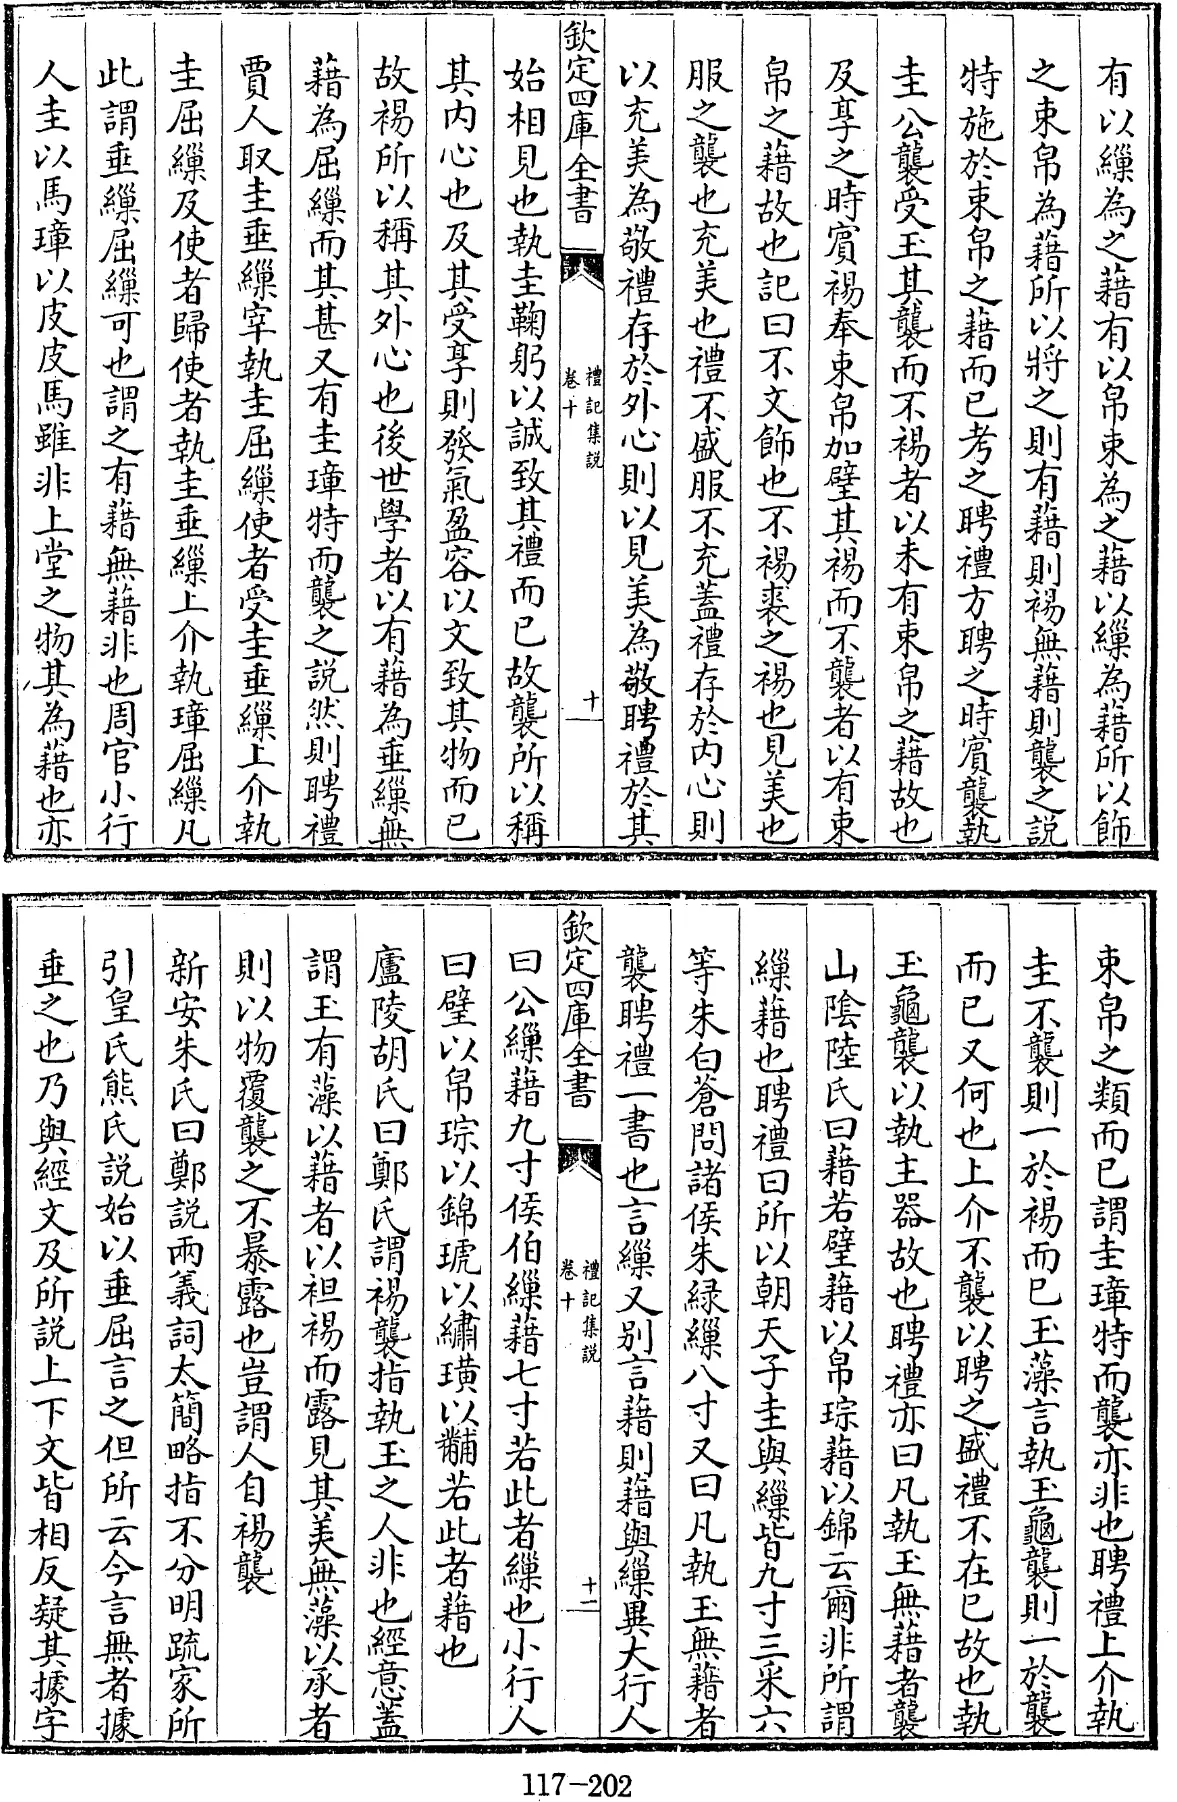 有以繅為之藉有以帛束為之藉以繅為藉所以飾
之束帛為藉所以將之則有藉則裼無藉則襲之說
特施於束帛之藉而已考之聘禮方聘之時賓襲執
圭公襲受玉其襲而不裼者以未有束帛之藉故也
及享之時賓裼奉束帛加璧其裼而不襲者以有束
帛之藉故也記曰不文飾也不裼裘之裼也見美也
服之襲也充美也禮不盛服不充蓋禮存於內心則
以充美為敬禮存於外心則以見美為敬聘禮於其
欽定四庫全書
禮記集說
卷十
十
始相見也執圭鞠躬以誠致其禮而已故襲所以稱
其內心也及其受享則發氣盈容以文致其物而已
故裼所以稱其外心也後世學者以有藉為垂繅無
藉為屈繅而其甚又有圭璋特而襲之說然則聘禮
賈人取圭垂繅宰執圭屈繅使者受圭垂繅上介執
圭屈繅及使者歸使者執圭垂繅上介執璋屈繅凡
此謂垂繅屈繅可也謂之有藉無藉非也周官小行
人圭以馬璋以皮皮馬雖非上堂之物其為藉也亦
束帛之類而已謂圭璋特而襲亦非也聘禮上介執
圭不襲則一於裼而已玉藻言執玉龜襲則一於襲
而已又何也上介不襲以聘之盛禮不在已故也執
玉龜襲以執主器故也聘禮亦曰凡執玉無藉者襲
山陰陸氏曰藉若璧藉以帛琮藉以錦云爾非所謂
繅藉也聘禮曰所以朝天子圭與繅皆九寸三采六
等朱白蒼問諸侯朱緑繅八寸又曰凡執玉無藉者
襲聘禮一書也言繅又别言藉則藉與繅異大行人
欽定四庫全書
禮記集說
卷十
十二
曰公繅藉九寸侯伯繅藉七寸若此者繅也小行人
曰璧以帛琮以錦琥以繡璜以黼若此者藉也
廬陵胡氏曰鄭氏謂裼襲指執玉之人非也經意蓋
謂玉有藻以藉者以袒裼而露見其美無藻以承者
則以物覆襲之不暴露也豈謂人自裼襲
新安朱氏曰鄭說兩義詞太簡略指不分明疏家所
引皇氏熊氏說始以垂屈言之但所云今言無者據
垂之也乃與經文及所說上下文皆相反疑其據字
117-202